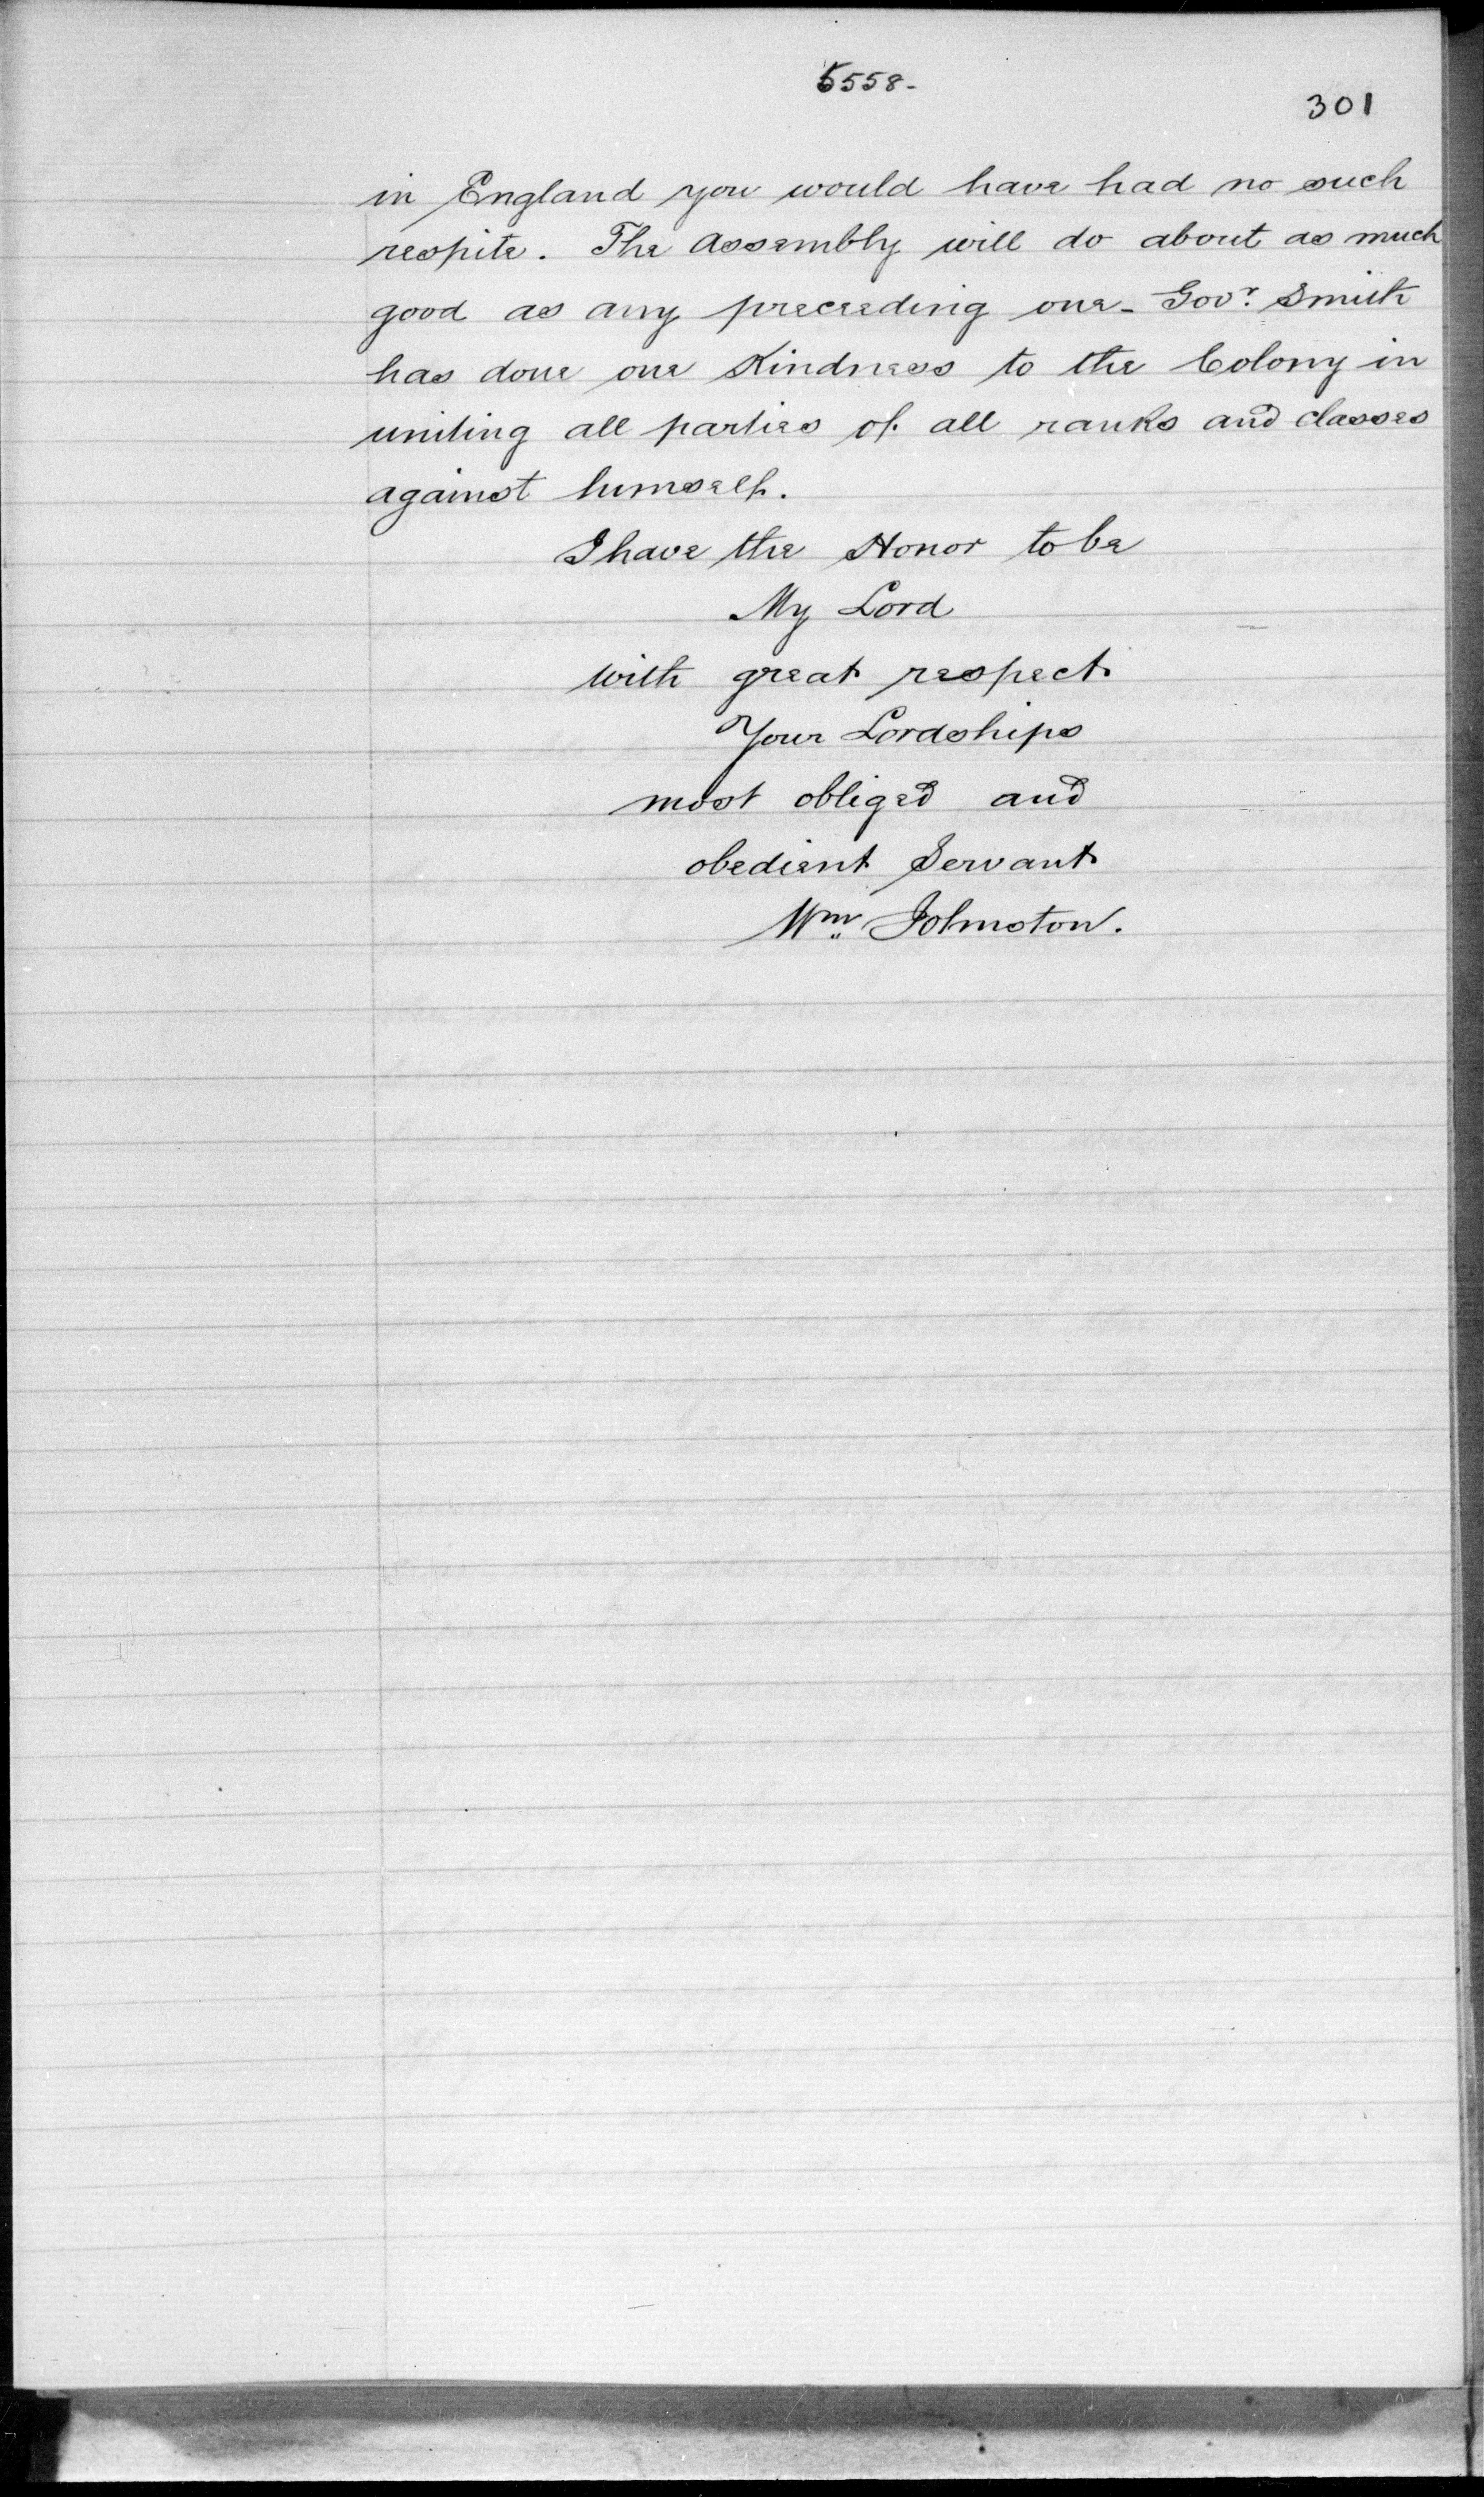 5558-
301
in England you would have had no such
respite. The Assembly will do about as much
good as any preceeding one - Govr. Smith
has done one Kindness to the Colony in
uniting all parties of all ranks and classes
against himself.
I have the Honor to be
My Lord
with great respect
Your Lordships
most obliged and
obedient Servant
Wm. Johnston.